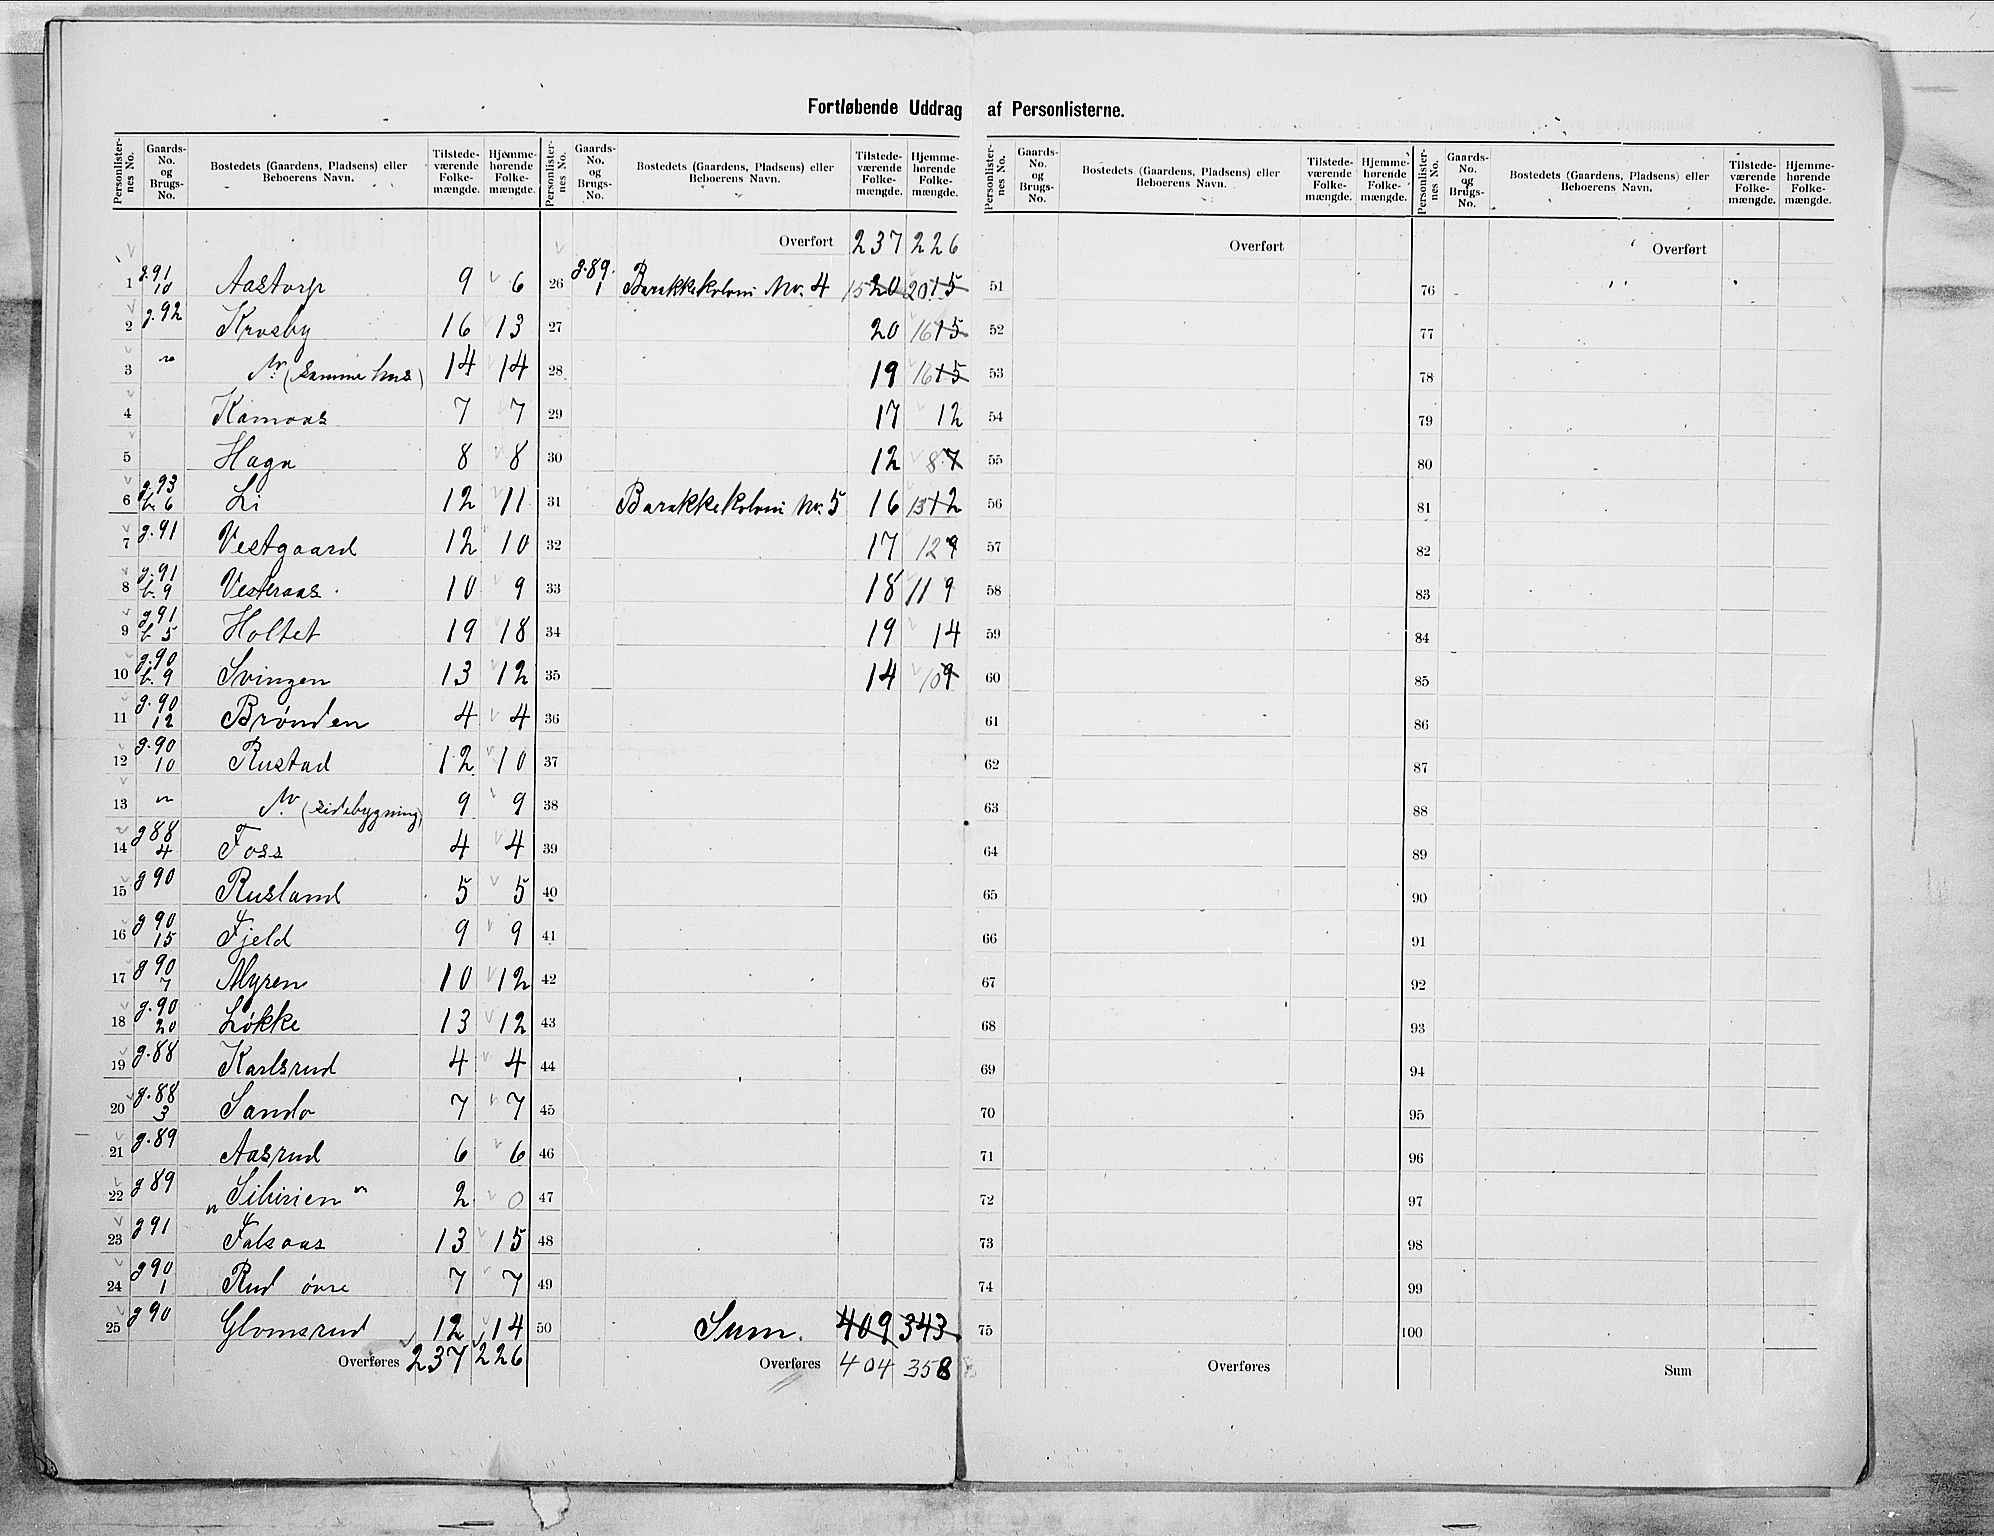 Fortløbende Uddrag af Personlisterne.
Personlister-nes No. Gaards-No. og Brugs-No. Bostedets (Gaardens, Pladsens) eller Beboerens Navn. Tilstede-værende Folke-mængde. Hjemme-hørende Folke-mængde.
1 g.91 10 Aastorp 9 6
2 g.92 Krosby 16 13
3 " (samme hus) 14 14
4 Kamaas 7 7
5 Haga 8 8
6 g.93 b. 6 Li 12 11
7 g.91 Vestgaard 12 10
8 g.91 b.9 Vesteraas. 10 9
9 g.91 b 5 Holtet 19 18
10 g.90 b.9 Svingen 13 12
11 g.90 12 Brønden 4 4
12 g.90 10 Rustad 12 10
13 " (sidebygning) 9 9
14 g88 4 Foss 4 4
15 g90 Rusland 5 5
16 g 90 15 Fjeld 9 9
17 g 90 7 Myren 10 12
18 g.90 20 Løkke 13 12
19 g.88 Karlsrud 4 4
20 g.88 3 Sando 7 7
21 g.89 Aasrud 6 6
22 g 89 „Sibirien" 2 0
23 g 91 Falsaas 13 15
24 g90 1 Rud øvre 7 7
25 g 90 Glomsrud 12 14
Overføres 237 226
Personlister-nes No. Gaards-No. og Brugs-No. Bostedets (Gaardens, Pladsens) eller Beboerens Navn. Tilstede-værende Folke-mængde. Hjemme-hørende Folke-mængde.
Overført 237 226
26 g.89. 1 Barakkekoloni No. 4 15 20 20 15
27 20 16 15
28 19 16 15
29 17 12
30 12 8 7
31 Barakkekoloni No. 5 16 13 12
32 17 12 9
33 18 11 9
34 19 14
35 14 10 9
36
37
38
39
40
41
42
43
44
45
46
47
48
49
50 Sum. 409 343
Overføres 404 358
Personlister-nes No. Gaards-No. og Brugs-No. Bostedets (Gaardens, Pladsens) eller Beboerens Navn. Tilstede-værende Folke-mængde. Hjemme-hørende Folke-mængde.
Overført
51
52
53
54
55
56
57
58
59
60
61
62
63
64
65
66
67
68
69
70
71
72
73
74
75
Overføres
Personlister-nes No. Gaards-No. og Brugs-No. Bostedets (Gaardens, Pladsens) eller Beboerens Navn. Tilstede-værende Folke-mængde. Hjemme-hørende Folke-mængde.
Overført
76
77
78
79
80
81
82
83
84
85
86
87
88
89
90
91
92
93
94
95
96
97
98
99
100
Sum